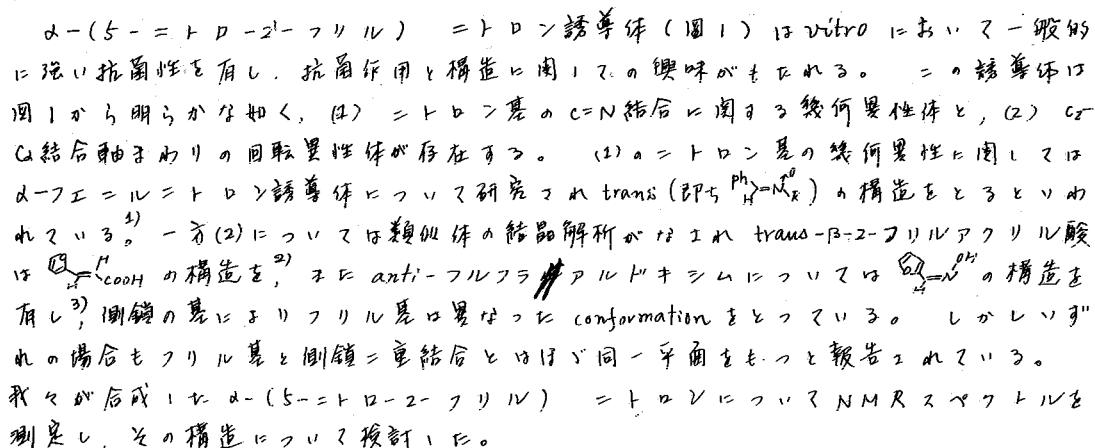 α-(5-ニトロ-2-フリル) ニトロン誘導体(図1)はvitroにおいて一般的
に強い抗菌性を有し、抗菌作用と構造に関しての興味がもたれる。 この誘導体は
図1から明らかな如く、(1) ニトロン基のC=N結合に関する幾何異性体と, (2) C2-
Cα結合軸まわりの回転異性体が存在する。 (1)のニトロン基の幾何異性に関しては
α-フェニルニトロン誘導体について研究されtrans(即ち Ph H >=N O R)の構造をとるといわ
れている1)。 一方(2)については類似体の結晶解析がなされtrans-β-2-フリルアクリル酸
は H H COOH の構造を,2) またanti-フルフラアルドキシムについては O H =N OH の構造を
有し3), 側鎖の基によりフリル基は異なったconformationをとっている。 しかしいず
れの場合もフリル基と側鎖二重結合とはほゞ同一平面をもつと報告されている。
我々が合成したα-(5-ニトロ-2-フリル) ニトロンについてNMRスペクトルを
測定し、その構造について検討した。